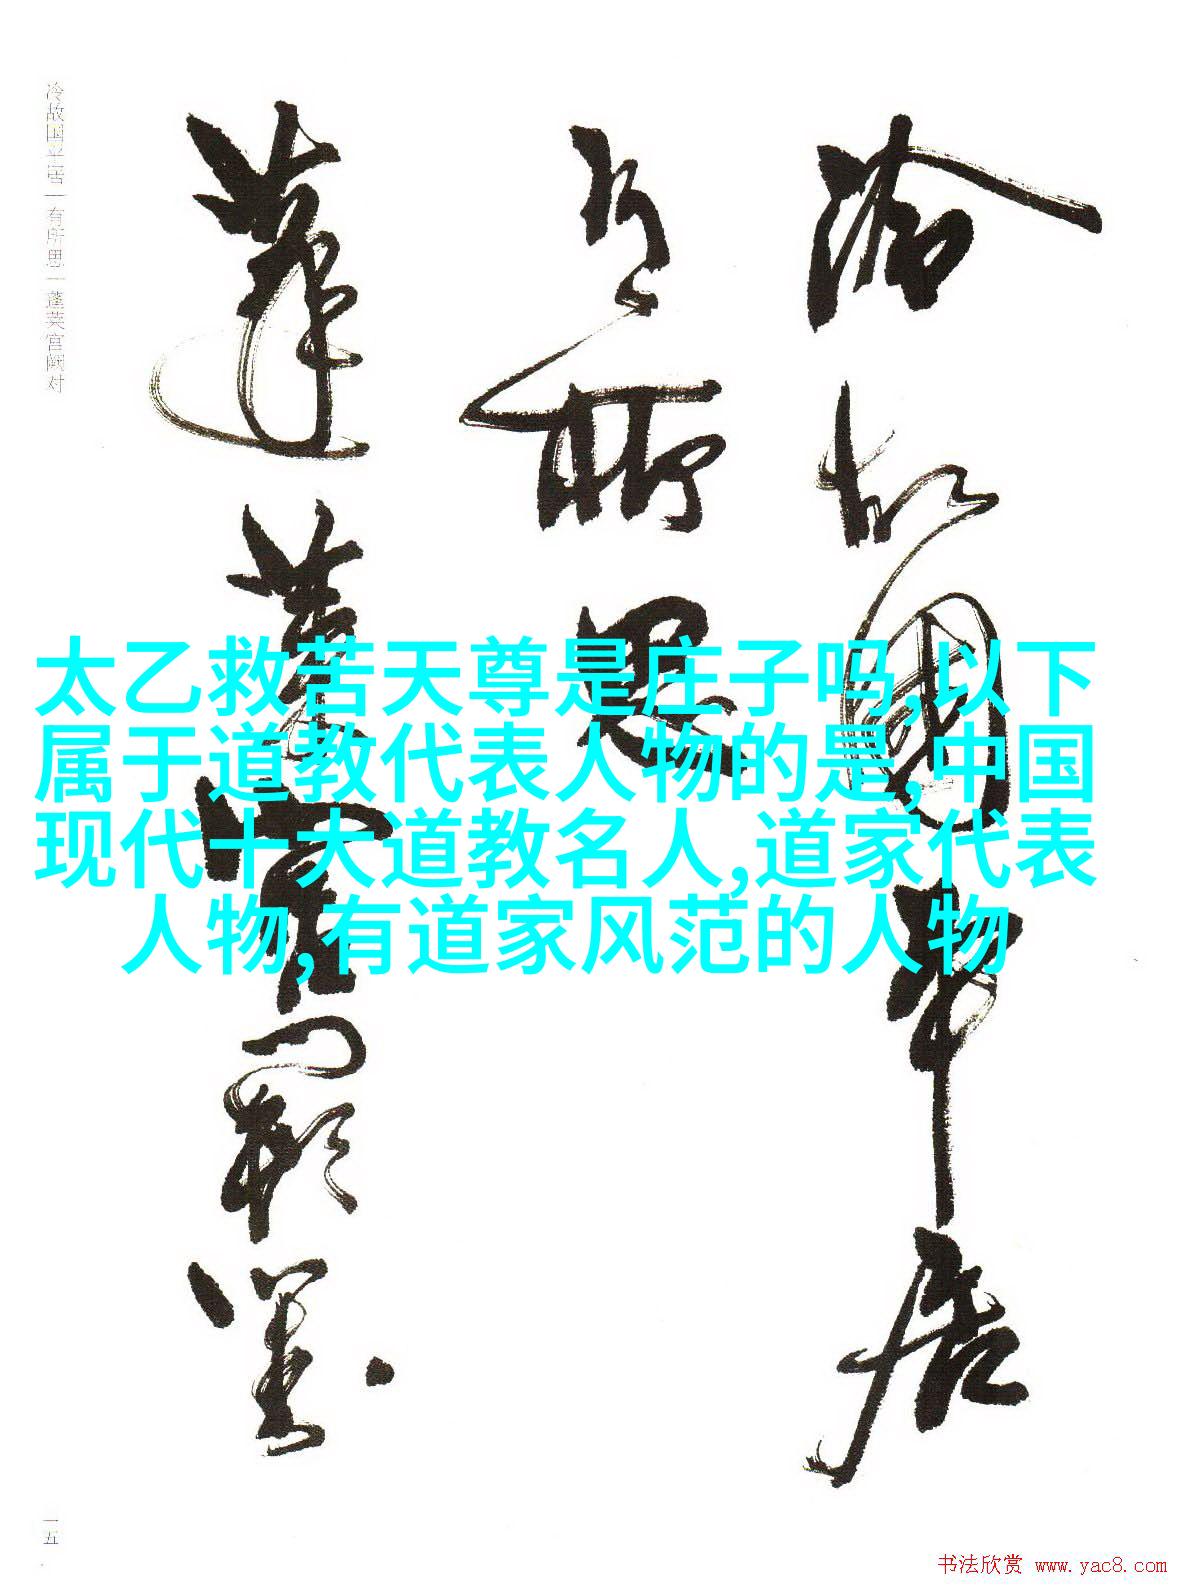 冷故国平居
有所思
蓬莱宫阙对
冷故国平居|有所思|蓬莱宫阙对
太乙救苦天尊是庄子吗,以下
属于道教代表人物的是,中国
现代十大道教名人,道家代表
人物,有道家风范的人物
一五
书法欣赏 www.yac8.com